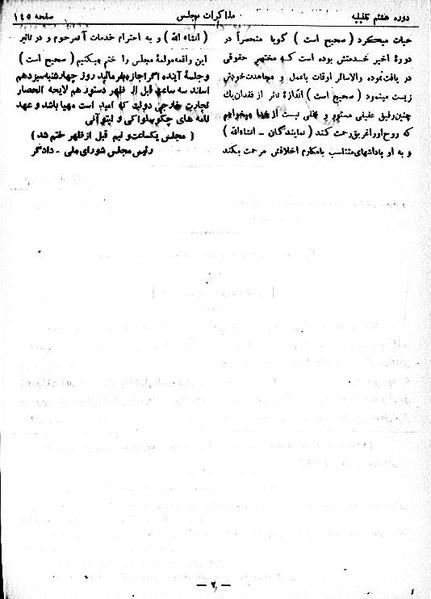 دوره هفتم تقنینیه
مذاکرات مجلس
صفحه ۱٤٥
حیات میکرد ( صحیح است ) گویا منحصراً در
دورهٔ اخیر خدمتش بوده است که مختصر حقوقی
دریافت نموده والاسایر اوقات باعمل و مجاهدت خودش
زیست مینمود ( صحیح است ) اندازهٔ تأثر از فقدان یك
چنین رفیق عفیفی مستور و مخفی نیست از خدا میخواهم
که روح اورا غریق رحمت کند ( نمایندگان - انشاءالله )
و به او پاداشهای متناسب بامکارم اخلاقش مرحمت بکند
( انشاء الله ) و به احترام خدمات آنمرحوم و در تأثیر
این واقعه مولمهٔ مجلس را ختم میکنیم ( صحیح است )
وجلسهٔ آینده اگر اجازه بفرمائید روز چهارشنبه سیزدهم
اسفند سه ساعت قبل از ظهر دستور هم لایحه انحصار
تجارت خارجی دولت که امید است مهیا باشد و عهد
نامه های چکوسلواکی و لیتوانی
( مجلس یکساعت و نیم قبل از ظهر ختم شد )
رئیس مجلس شورای ملی - دادگر
— ۲ —